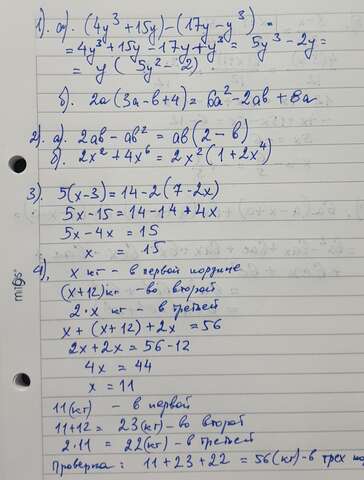 1). а). (4y³ + 15y) - (17y - y³) =
= 4y³ + 15y - 17y + y³ = 5y³ - 2y =
= y (5y² - 2).
б). 2a (3a - b + 4) = 6a² - 2ab + 8a
2). а). 2ab - ab² = ab (2 - b)
б). 2x² + 4x⁶ = 2x² (1 + 2x⁴)
3). 5(x - 3) = 14 - 2 (7 - 2x)
5x - 15 = 14 - 14 + 4x
5x - 4x = 15
x = 15
4). x кг - в первой корзине
(x + 12) кг - во второй
2·x кг - в третьей
x + (x + 12) + 2x = 56
2x + 2x = 56 - 12
4x = 44
x = 11
11 (кг) - в первой
11 + 12 = 23 (кг) - во второй
2·11 = 22 (кг) - в третьей
Проверка: 11 + 23 + 22 = 56 (кг) - в трех